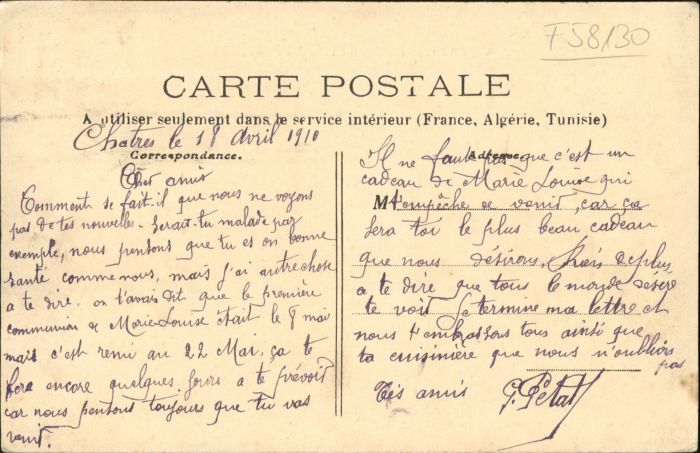 F58/30
CARTE POSTALE
A utiliser seulement dans le service intérieur (France, Algérie, Tunisie)
Chatres le 18 Avril 1910
Correspondance.
Cher amis
Comment se fait-il que nous ne voyons
pas de tes nouvelles. Serait-tu malade par
exemple, nous pensons que tu es en bonne
santé comme nous, mais j'ai autre chose
a te dire. on t'avais dit que le première
communion de Marie-Louise était le 8 mai
mais c'est remi au 22 Mai. ça te
fera encore quelques jours a te prévoir
car nous pensons toujours que tu vas
venir.
Adresse
Il ne faut pas que c'est un
cadeau de Marie Louise qui
M
t'empêche de venir, car ça
sera toi le plus beau cadeau
que nous désirons. Puis de plus
a te dire que tous le monde désire
te voir. Je termine ma lettre et
nous t'embrassons tous ainsi que
ta cuisinière que nous n'oublions
pas
Tes amis G. Petat